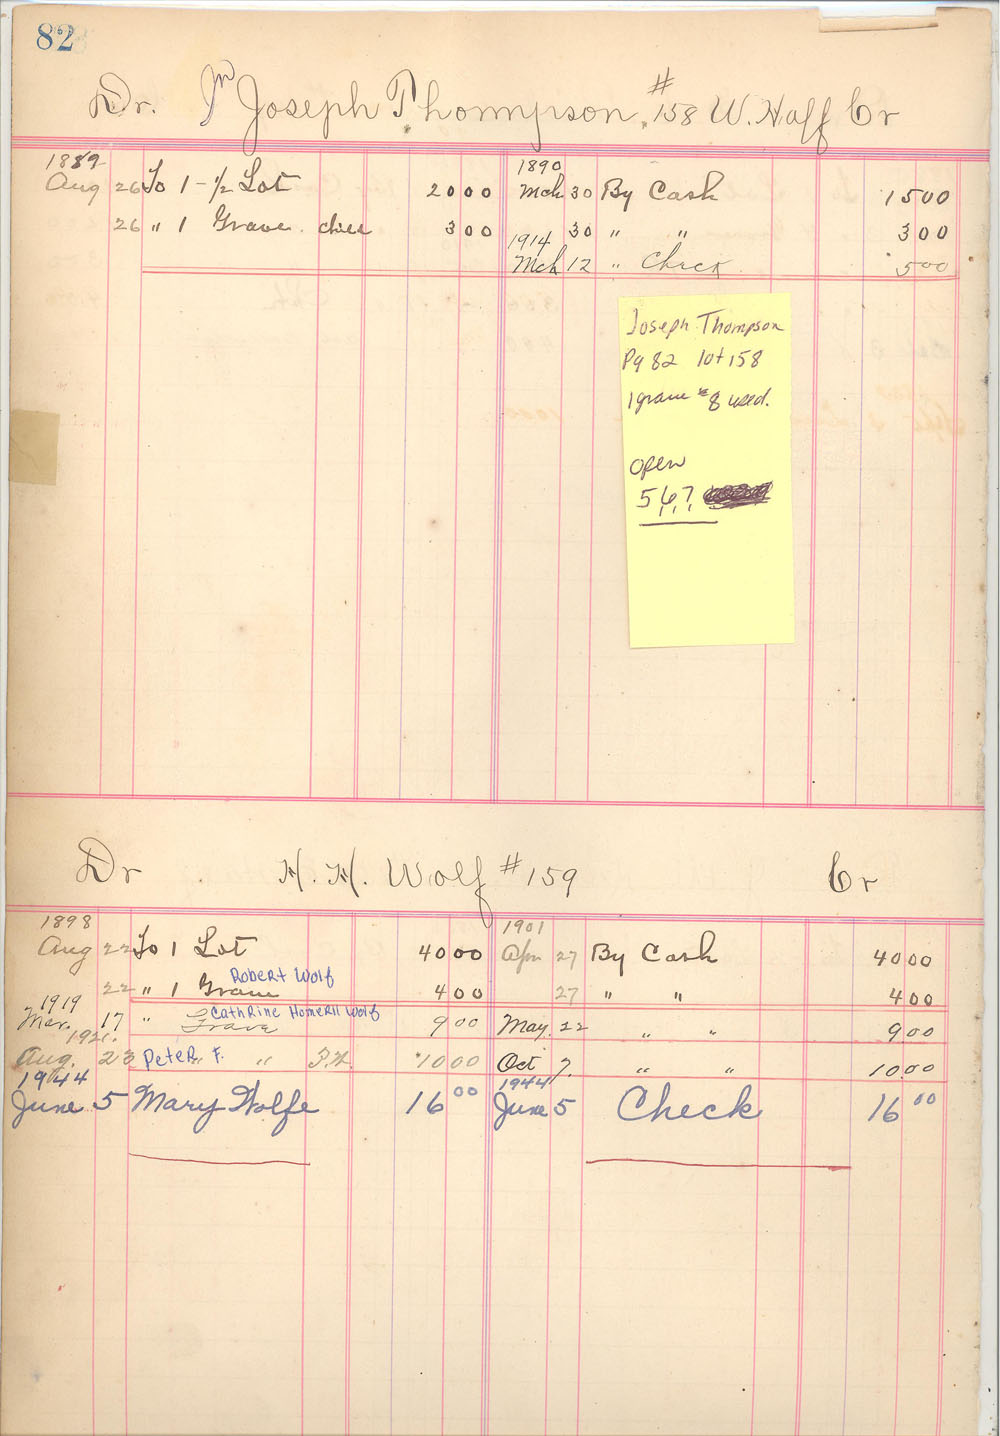 82
Dr. Jr Joseph Thompson #158 W. Half Cr
1889 1890
Aug 26 To 1-½ Lot 2000 Mch 30 By Cash 1500
26 " 1 Grave child 300 30 " " 300
1914
Mch 12 " Check 500
Joseph Thompson
Pg 82 lot 158
1 grave #8 used.
open
5, 6, 7
Dr H. H. Wolf #159 Cr
1898 1901
Aug 22 To 1 Lot 4000 Apr 27 By Cash 4000
Robert Wolf
22 " 1 Grave 400 27 " " 400
1919 Cathrine Homerll Wolf
Mar. 17 " Grave 900 May. 22 " " 900
1921.
Aug. 23 Peter F. " 1000 Oct 7. " " 1000
1944 1944
June 5 Mary Wolfe 16 00 June 5 Check 16 00